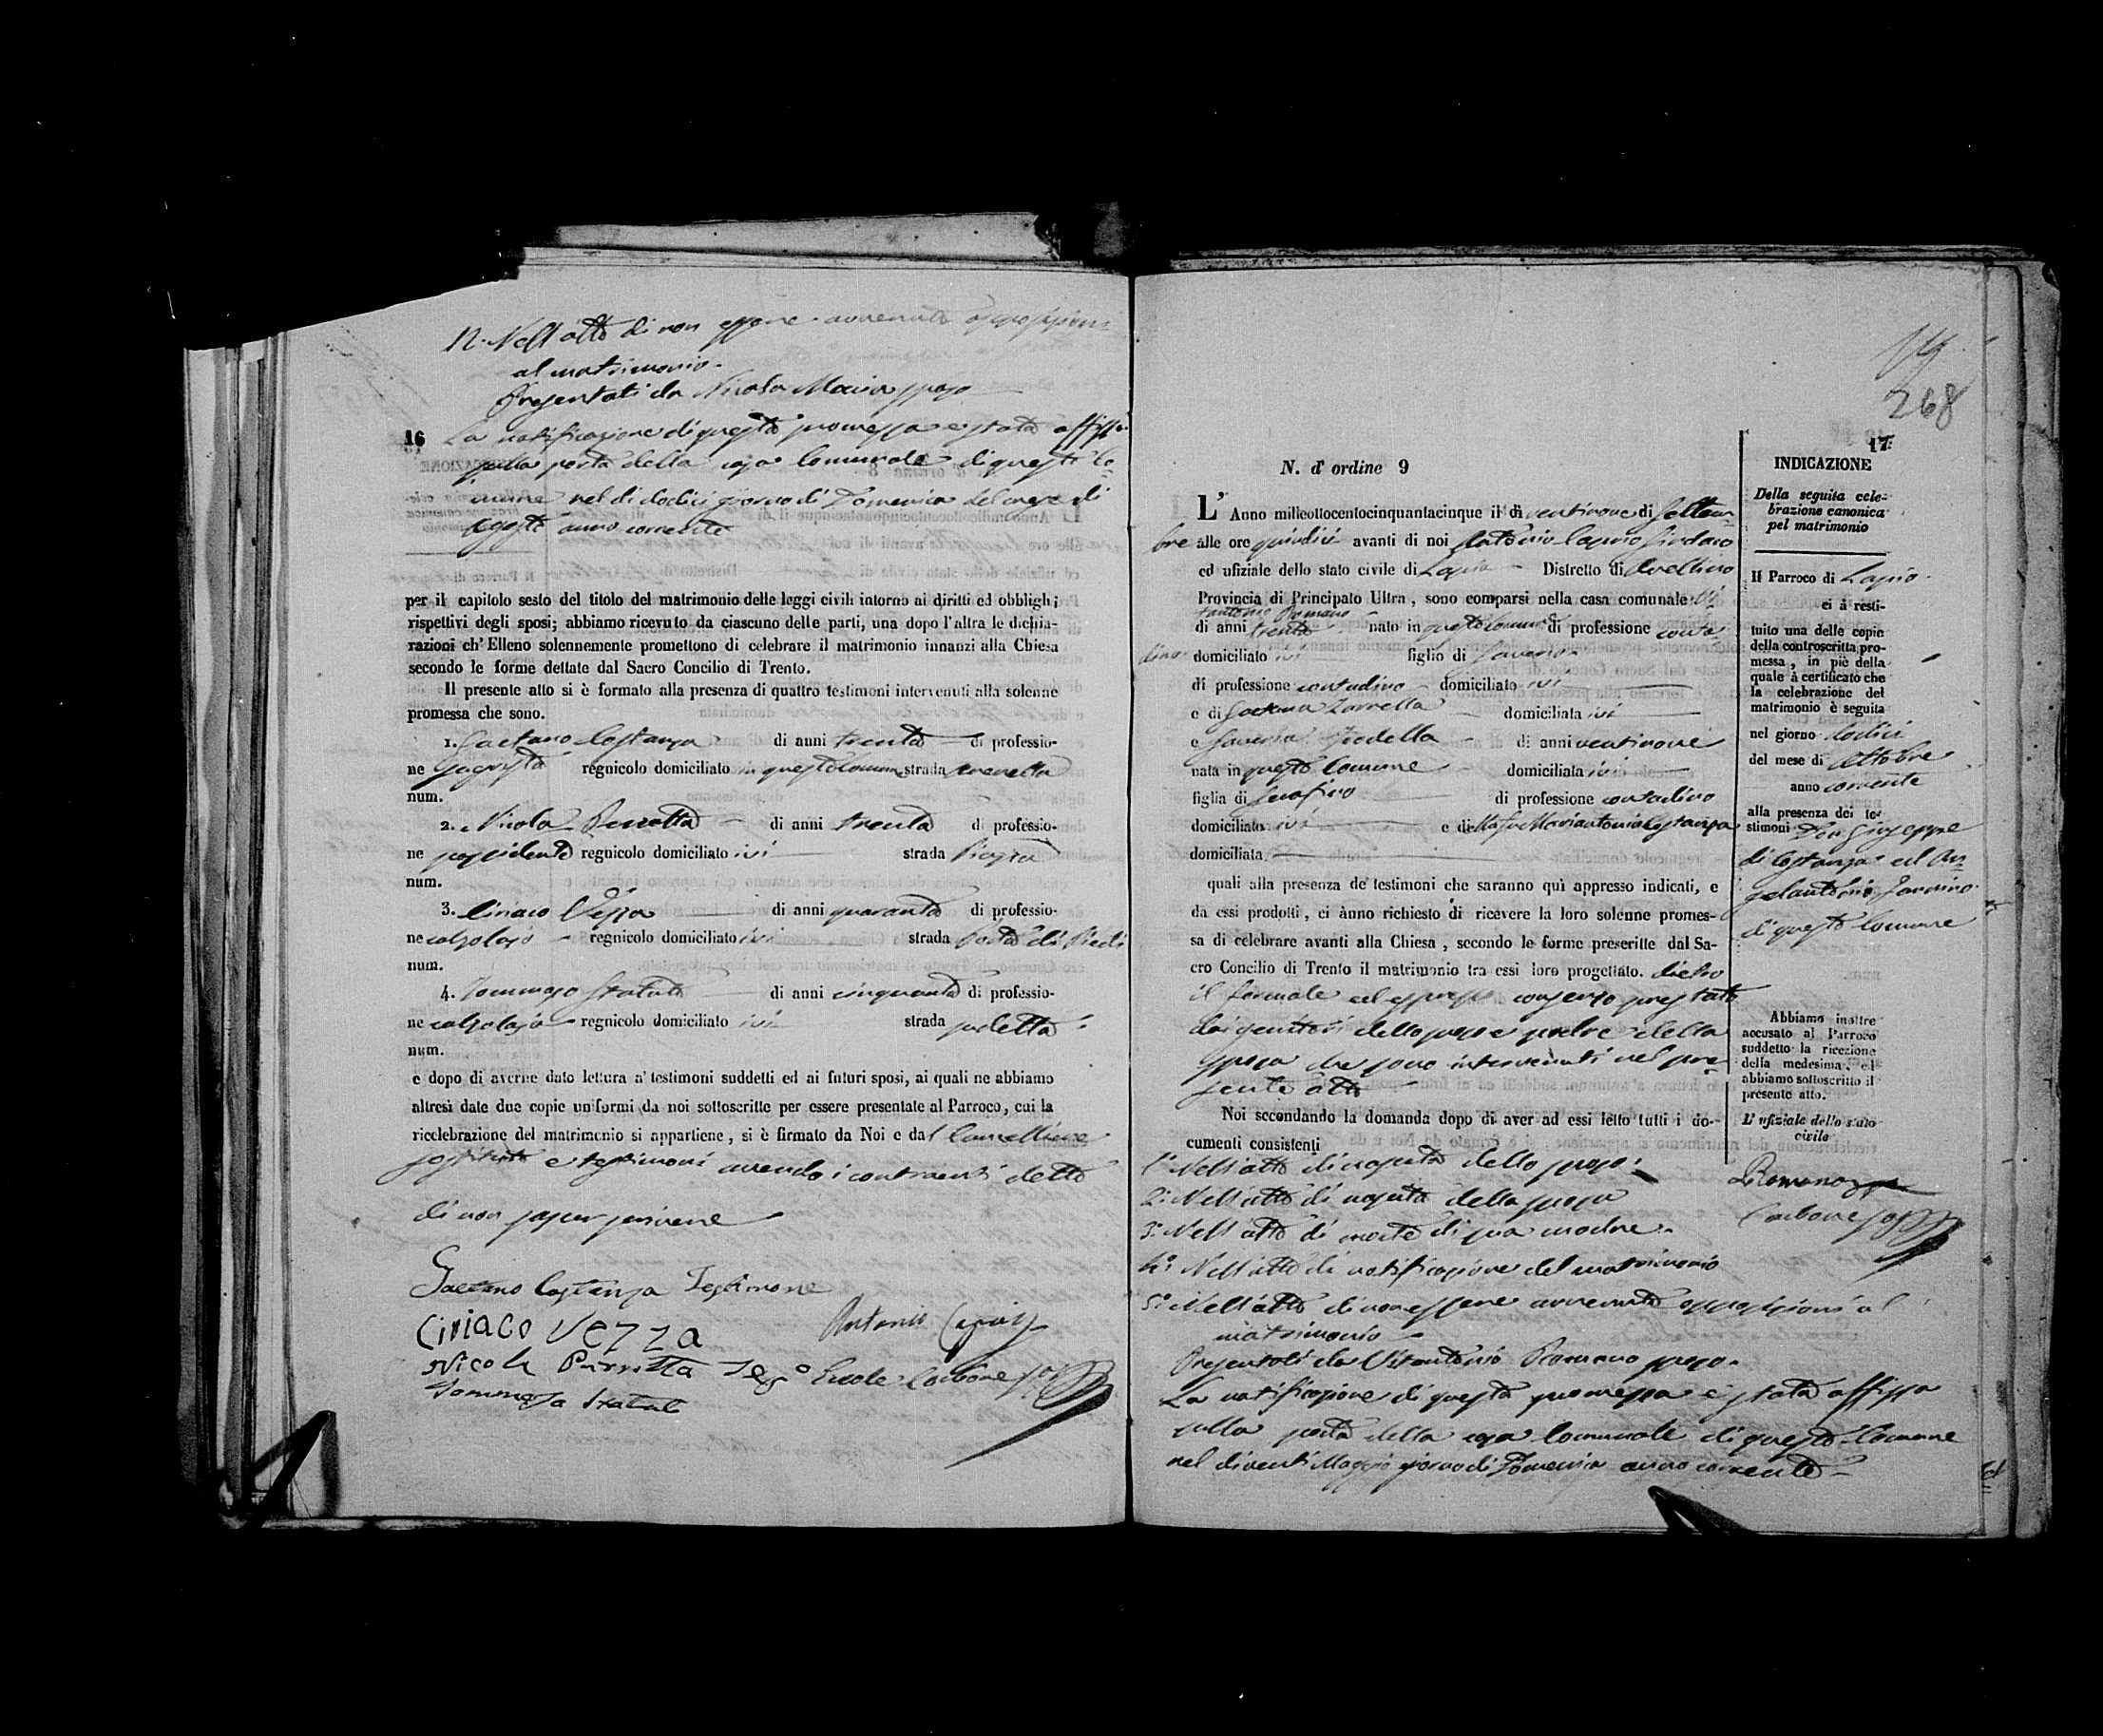 12. Nell'atto di non essere avvenuta opposizione
al matrimonio.
Presentati da Nicola Maria sposo
16
La notificazione di questa promessa è stata affissa
sulla porta della casa Comunale di questo Co=
mune nel dì dodici giorno di Domenica del mese di
Agosto anno corrente
per il capitolo sesto del titolo del matrimonio delle leggi civili intorno ai diritti ed obblighi
rispettivi degli sposi; abbiamo ricevuto da ciascuno delle parti, una dopo l'altra le dichia-
razioni ch'Elleno solennemente promettono di celebrare il matrimonio innanzi alla Chiesa
secondo le forme dettate dal Sacro Concilio di Trento.
Il presente atto si è formato alla presenza di quattro testimoni intervenuti alla solenne
promessa che sono.
1. Gaetano Costanza di anni trenta di professio-
ne regnicolo domiciliato in questo Comune strada
num.
2. Nicola Perrotta di anni trenta di professio-
ne possidente regnicolo domiciliato ivi strada Piazza
num.
3. Ciriaco Vezza di anni quaranta di professio-
ne calzolajo regnicolo domiciliato ivi strada Porta di Piedi
num.
4. Tommaso Statuto di anni cinquanta di professio-
ne calzolajo regnicolo domiciliato ivi strada
num.
e dopo di averne dato lettura a' testimoni suddetti ed ai futuri sposi, ai quali ne abbiamo
altresì date due copie uniformi da noi sottoscritte per essere presentate al Parroco, cui la
ricelebrazione del matrimonio si appartiene, si è firmato da Noi e dal Cancelliere
sostituto e testimoni avendo i contraenti detto
di non saper scrivere
Gaetano Costanza Testimone
Ciriaco Vezza
Antonio
Nicola Perrotta Tes°
Ercole Carbone sos
Tommaso Statuto
268
17:
N. d' ordine 9
L'Anno milleottocentocinquantacinque il dì ventinove di Settem=
bre alle ore quindici avanti di noi Antonio Caprio Sindaco
ed ufiziale dello stato civile di Lapio Distretto di Avellino
Provincia di Principato Ultra, sono comparsi nella casa comunale Vi=
tantonio Romano
di anni trenta nato in questo Comune di professione conta=
dino domiciliato ivi figlio di Saverio
di professione contadino domiciliato ivi
e di Gaetana Zarrella domiciliata ivi
e Saveria di anni ventinove
nata in questo Comune domiciliata ivi
figlia di Serafino di professione contadino
domiciliato ivi e della fu Mariantonia Costanza
domiciliata
quali alla presenza de' testimoni che saranno quì appresso indicati, e
da essi prodotti, ci ànno richiesto di ricevere la loro solenne promes-
sa di celebrare avanti alla Chiesa, secondo le forme prescritte dal Sa-
cro Concilio di Trento il matrimonio tra essi loro progettato. dietro
il formale ed espresso consenso prestato
dai genitori dello sposo e padre della
sposa che sono intervenuti nel pre=
sente atto
Noi secondando la domanda dopo di aver ad essi letto tutti i do-
cumenti consistenti
1° Nell'atto di nascita dello sposo:
2° Nell'atto di nascita della sposa
3° Nell'atto di morte di sua madre.
4° Nell'atto di notificazione del matrimonio
5° Nell'atto di non essere avvenuta opposizioni al
matrimonio
Presentati da Vitantonio Romano sposo.
La notificazione di questa promessa è stata affissa
sulla porta della casa Comunale di questo Comune
nel dì venti Maggio giorno di Domenica anno corrente
INDICAZIONE
Della seguita cele-
brazione canonica
pel matrimonio
Il Parroco di Lapio
ci à resti-
tuito una delle copie
della controscritta pro-
messa, in piè della
quale à certificato che
la celebrazione del
matrimonio è seguita
nel giorno dodici
del mese di Ottobre
anno corrente
alla presenza dei te-
stimoni Don Giuseppe
di Costanza ed An=
gelantonio
di questo Comune
Abbiamo inoltre
accusato al Parroco
suddetto la ricezione
della medesima, ed
abbiamo sottoscritto il
presente atto.
L'ufiziale dello stato
civile
Romano
Carbone sos